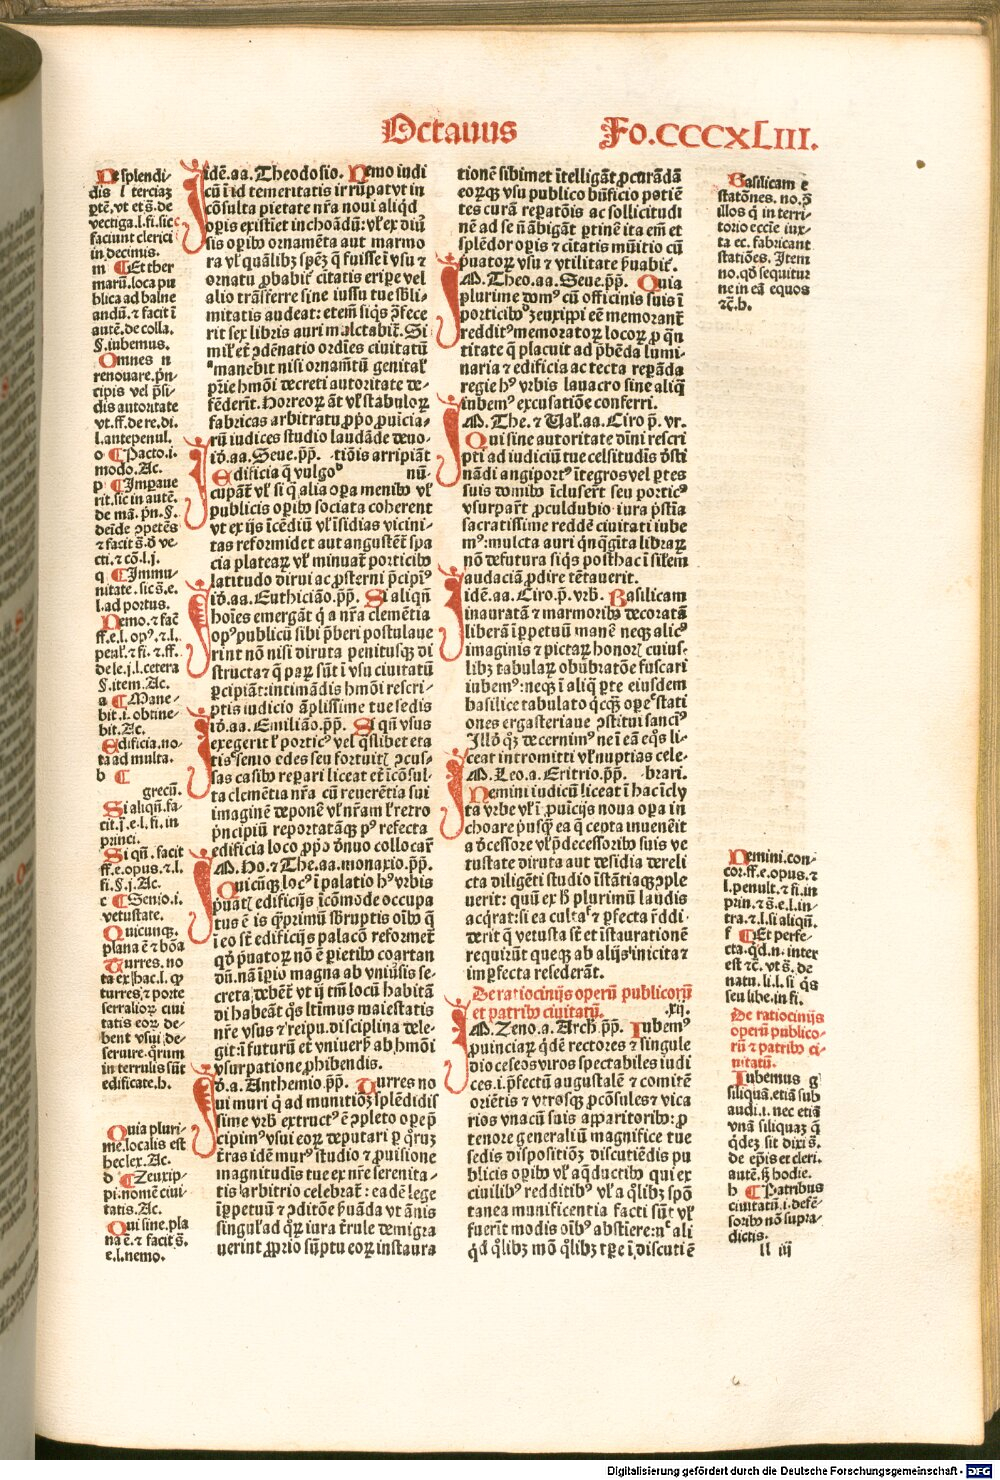 Octauus
Fo.CCCXLIII.
De splendi-
dis l terciaz
ptē, vt et s̄.de
vectiga.l.fi.sic
faciunt clerici
in decimis.
m ¶Et ther
marū.loca pu
blica ad balne
andū.⁊ facit ī
autē.de colla.
§.iubemus.
Omnes n
renouare.p̄n-
cipis vel p̄si-
dis autoritate
vt.ff.de re.di.
l.antepenul.
o ¶Pacto.i.
modo.Ac.
p ¶Imparue
rit.sic in autē.
de mā.p̄n.§.
deīde ꝯpetēs
⁊ facit s̄.d ve-
cti.⁊ cō.l.j.
q ¶Immu-
nitate.sic s̄.e.
l.ad portus.
Nemo.⁊ facē
ff.e.l.op⁹.⁊.l.
penl.⁊ fi.⁊.ff.
de le.j.l.cetera
§.item.Ac.
a ¶Mane-
bit.i.obtine-
bit.Ac.
Edificia.no-
ta ad multa.
b ¶
grecū.
Si aliqn̄.fa-
cit.j̄.e.l.fi.in
princi.
Si qn̄.facit
ff.e.opus.⁊.l.
fi.§.j.Ac.
c ¶Senio.i.
vetustate.
Quicunq.
plana ē ⁊ bōa
Turres.no
ta ex hac.l.qp
turres,⁊ porte
serralioꝝ ciui
tatis eoꝝ de-
bent vsui de-
seruire.qꝛum
in terrulis sūt
edificate.b.
Quia pluri-
me.localis est
hec lex.Ac.
d ¶Zeuxip-
pi.nomē ciui-
tatis.Ac.
Qui sine.pla
na ē.⁊ facit s̄.
e.l.nemo.
Idē.aa.Theodosio. Nemo iudi
cū ī id temeritatis irrūpat vt in
cōsulta pietate nr̄a noui aliqd
oꝑis existiet inchoādū:vl' ex diū
sis oꝑibꝫ ornamēta aut marmo
ra vl' quālibꝫ spēꝫ q̄ fuisse ī vsu ⁊
ornatu ꝓbabit citatis eriꝑe vel
alio trāsferre sine iussu tue sbli-
mitatis audeat: etem̄ siqs ꝯfece
rit sex libris auri mulctabit̄. Si
mil'et ꝯdēnatio ordīes ciuitatū
manebit nisi ornam̄tū genital'
pr̄ie hmōi decreti autoritate de-
fēderit. Horreoꝝ āt vl' stabuloꝝ
fabricas arbitratu ꝓpō ꝓuīcia-
rū iudices studio laudāde deuo-
Id.aa.Seue.p̄p. tiōis arripiāt
Edificia q̄ vulgo nū-
cupāt̄ vl' si q̄ alia oꝑa menibꝫ vl'
publicis oꝑibꝫ sociata coherent
vt ex ijs īcēdiū vl' īsidias vicini-
tas reformidet aut angustēt̄ spa
cia plateaꝝ vl' minuat̄ porticibꝫ
latitudo dirui ac ꝓsterni p̄cipi⁹
Id.aa.Euthiciāo.p̄p. Si aliqn̄
hoīes emergāt q̄ a nr̄a clemētia
op⁹ publicū sibi p̄beri postulaue
rint nō nisi diruta penitusqꝫ di
structa ⁊ q̄ paꝝ sūt ī vsu ciuitatū
ꝑcipiāt:intimādis hmōi rescri-
ptis iudicio āplissime tue sedis
Id.aa.Emiliāo.p̄p. Si qn̄ vsus
exegerit l' portic⁹ vel q̄slibet eta
tis senio edes seu fortuit ꝯcus-
sas casibꝫ reꝑari liceat et īcōsul-
ta clemētia nr̄a cū reuerētia sui
imaginē deponē vl' nr̄am l' retro
pn̄cipiū reportatāqꝫ p⁹ refecta
edificia loco ꝓpō dnuo collocar̄
M.Ho.⁊ The.aa.monaxio.p̄p.
Quicūqꝫ loc⁹ ī palatio h⁹ vrbis
p̄uat edificijs īcōmode occupa
tus ē is q̄ꝓrimū sbruptis oībꝫ q̄
ī eo st̄ edificijs palacō reformet̄
qd p̄uatoꝝ nō ē ꝑietibꝫ coartan
dū.nā īꝑio magna ab vniūsis se-
creta debēt̄ vt ij tm̄ locū habitā
di habeāt qs ltimus maiestatis
nr̄e vsus ⁊ reipu.disciplina dele-
git:ī futurū et vniuerſ' ab hmōi
vsurpatione ꝓhibendis.
Id.a.Anthemio.p̄p. Turres no
ui muri q̄ ad munitiōꝫ splēdidis
sime vrb extruct⁹ ē ꝯpleto oꝑe p̄
cipim⁹ vsui eoꝝ deputari ꝑ qꝛuꝫ
tr̄as idē mur⁹ studio ⁊ ꝓuisione
magnitudīs tue ex nr̄e serenita-
tis arbitrio celebrat̄:eadē lege
īꝑpetuū ⁊ ꝯditōe p̄uāda vt ānis
singul'ad qꝝ iura tr̄rule demigra
uerint ꝓprio sūptu eoꝝ instaura
tionē sibimet ītelligāt ꝓcurādā
eoꝝqꝫ vsu publico bn̄ficio potiē
tes curā reꝑatōis ac sollicitudi
nē ad se n̄ ābigāt ꝑtinē ita em̄ et
splēdor oꝑis ⁊ citatis mūitio cū
p̄uatoꝝ vsu ⁊ vtilitate p̄uabit̄.
M.Theo.aa.Seue.p̄p. Quia
plurime dom⁹ cū officinis suis ī
porticibꝫ zeuxippi eē memorant̄
reddit⁹ memoratoꝝ locoꝝ ꝓ qn̄
titate q̄ placuit ad p̄bēda lumi-
naria ⁊ edificia ac tecta reꝑāda
regie h⁹ vrbis lauacro sine aliq̄
iubem⁹ excusatiōe conferri.
M.The.⁊ Ual.aa.Ciro p̄.vr.
Qui sine autoritate dīni rescri
pti ad iudiciū tue celsitudīs dsti
nādi angiport⁹ ītegros vel ꝑtes
suis domibꝫ īcluserīt seu portic⁹
vsurpar̄t ꝓculdubio iura p̄stīa
sacratissime reddē ciuitati iube
m⁹:mulcta auri qn̄qgīta libraꝝ
nō defutura siqs posthac ī sil'em
audaciā ꝓdire tētauerit.
Idē.aa.Ciro.p̄.vrb. Basilicam
inauratā ⁊ marmoribꝫ decoratā
liberā īꝑpetuū manē neqꝫ alic⁹
imaginis ⁊ pictaꝝ honor cuius-
libꝫ tabulaꝝ obūbratōe fuscari
iubem⁹:neqꝫ ī aliq̄ ꝑte eiusdem
basilice tabulato qcqꝫ oꝑe stati
ones ergasteriaue ꝯstitui sancī⁹
Illd qꝫ decernim⁹ ne ī eā eqs li-
ceat intromitti vl' nuptias cele-
M.Leo.a.Eritrio.p̄p. brari.
Nemini iudicū liceat ī hac īcly
ta vrbe vl' ī ꝓuīcijs noua oꝑa in
choare p̄usqꝫ ea q̄ cepta inuenēit
a dcessore vl' p̄decessoribꝫ suis ve
tustate diruta aut desidia dereli
cta diligēti studio īstātiaqꝫ ꝯple
uerit: quū ex h plurimū laudis
acqrat:si ea culta ⁊ ꝑfecta rddi-
derit q̄ vetusta st̄ et īstaurationē
requirūt queqꝫ ab alijs inicita ⁊
imꝑfecta resederāt.
De ratiocinijs operū publicorū
et patribꝫ ciuitatū. .xij.
M.Zeno.a.Arch.p̄p. Iubem⁹
ꝓuinciaꝝ qdē rectores ⁊ singule
dioceseos viros spectabiles iudi
ces.i.p̄fectū augustalē ⁊ comitē
oriētis ⁊ vtrosqꝫ ꝓcōsules ⁊ vica
rios vnacū suis apparitoribꝫ:ꝓ
tenore generaliū magnifice tue
sedis dispositiōꝫ discutiēdis pu
blicis oꝑibꝫ vl' aqductibꝫ qui ex
ciuilibꝫ redditibꝫ vl' a qlibꝫ spō
tanea munificentia facti sūt vl'
fuerīt modis oībꝫ abstiere:n ali
qd qlibꝫ mō qlibꝫ tꝑe ī discutiē
Basilicam e
statōnes. no.p̄
illos q̄ in terri-
torio eccīe iux-
ta ec.fabricant
statiōes. Item
no.qd sequitur
ne in eā equos
⁊c̄.b.
Nemini.con-
cor.ff.e.opus.⁊
l.penult.⁊ fi.in
prin.⁊ s̄.e.l.in-
tra.⁊.l.si aliqn̄.
f ¶Et perfe-
cta.qd.n.inter
est ⁊c̄.vt s̄.de
natu.li.l.si qs
seu libe.in fi.
De ratiocinijs
operū publico-
rū ⁊ patribꝫ ci-
uitatū.
Iubemus g
siliquā.etiā sub
audi.i.nec etiā
vnā siliquaꝫ q̄
qdeꝫ sit dixi s̄.
de ep̄is et cleri.
autē.sꝫ hodie.
h ¶Patribus
ciuitatū.i.defē-
soribꝫ nō supra-
dictis.
ll iij
Digitalisierung gefördert durch die Deutsche Forschungsgemeinschaft - DFG